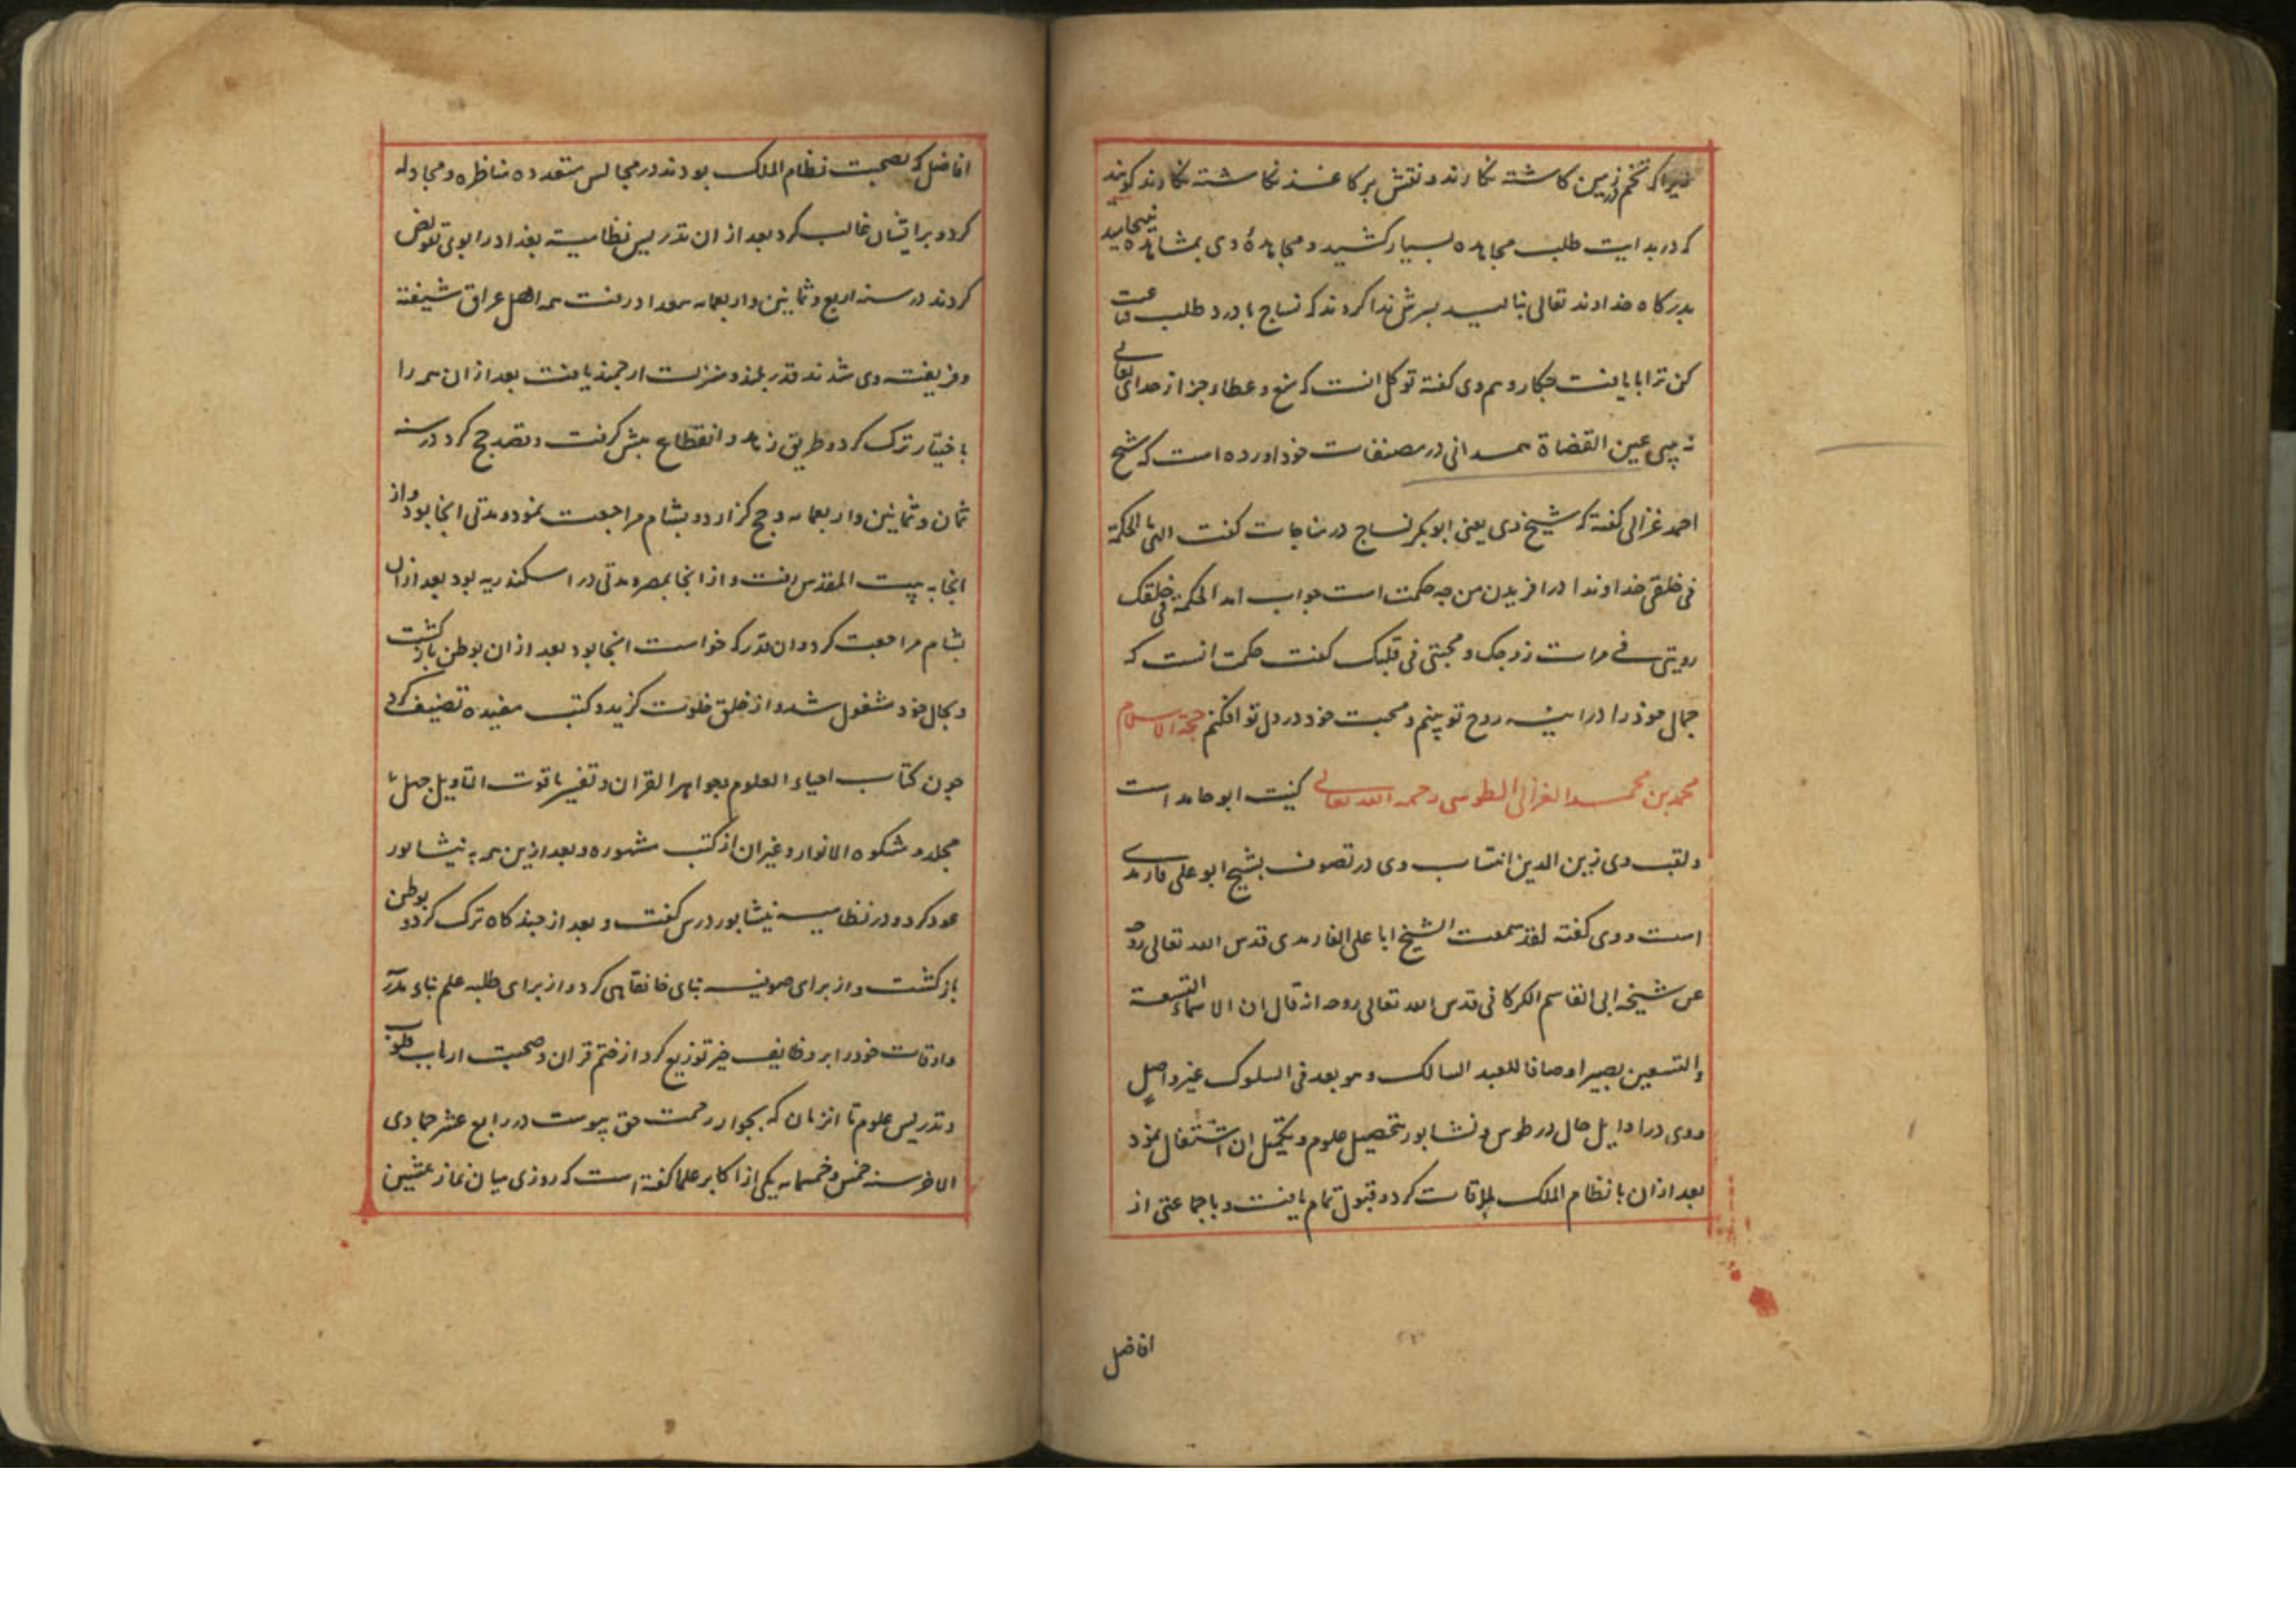 زیرا که تخم در زمین کاشته نکارند و نقش بر کاغذ نکاشته نکارند کویند
که در بدایت طلب مجاهده بسیار کشید و مجاهدهٔ وی بمشاهده نیجامید
بدرکاه خداوند تعالی بنالید بسرش ندا کردند که نساج با درد طلب قناعت
کن ترا با یافت چکار و هم وی کفته توکل انست که منع و عطا جز از خدای تعالی
نه بینی عین القضاة همدانی در مصنفات خود اورده است که شیخ
احمد غزالی کفته که شیخ وی یعنی ابو بکر نساج در مناجات کفت الهی ما الحکمة
فی خلقی خداوندا در افریدن من چه حکمت است جواب امد الحکمة فی خلقک
رویتی فی مرات روحک و محبتی فی قلبک کفت حکمت انست که
جمال خود را در اینه روح تو بینم و محبت خود در دل تو افکنم حجة الاسلام
محمد بن محمد الغزالی الطوسی رحمه الله تعالی کنیت ابو حامد است
و لقب وی زین الدین انتساب وی در تصوف بشیخ ابو علی فارمدی
است و وی کفته لقد سمعت الشیخ ابا علی الفارمدی قدس الله تعالی روحه
عن شیخه ابی القاسم الکرکانی قدس الله تعالی روحه انه قال ان الاسماء التسعة
والتسعین یصیر اوصافا للعبد السالک و هو بعد فی السلوک غیر واصل
و وی در اوایل حال در طوس و نشابور بتحصیل علوم و تکمیل ان اشتغال نمود
بعد ازان با نظام الملک ملاقات کرد و قبول تمام یافت و با جماعتی از
افاضل
افاضل که بصحبت نظام الملک بودند در مجالس متعدده مناظره و مجادله
کرد و بر ایشان غالب کرد بعد از ان تدریس نظامیه بغداد را بوی تفویض
کردند در سنه اربع و ثمانین و اربعمایه ببغداد رفت همه اهل عراق شیفته
و فریفته وی شدند قدر بلند و منزلت ارجمند یافت بعد ازان همه را
باختیار ترک کرد و طریق زهد و انقطاع پیش کرفت و قصد حج کرد در سنه
ثمان و ثمانین و اربعمایه و حج کزارد و بشام مراجعت نمود و مدتی انجا بود و از
انجا به بیت المقدس رفت و از انجا بمصر و مدتی در اسکندریه بود بعد ازان
بشام مراجعت کرد و ان قدر که خواست انجا بود بعد از ان بوطن بازکشت
و بحال خود مشغول شد و از خلق خلوت کزید و کتب مفیده تصنیف کرد
چون کتاب احیاء العلوم و جواهر القران و تفسیر یاقوت التاویل چهل
مجلد و مشکوه الانوار و غیر ان از کتب مشهوره و بعد ازین همه به نیشابور
عود کرد و در نظامیه نیشابور درس کفت و بعد از چند کاه ترک کرد و بوطن
بازکشت و از برای صوفیه بنای خانقاهی کرد و از برای طلبه علم بناء مدرسه
و اوقات خود را بر وظایف خیر توزیع کرد از ختم قران و صحبت ارباب قلوب
و تدریس علوم تا انزمان که بجوار رحمت حق پیوست در رابع عشر جمادی
الاخر سنه خمس و خمسمایه یکی از اکابر علما کفته است که روزی میان نماز پیشین